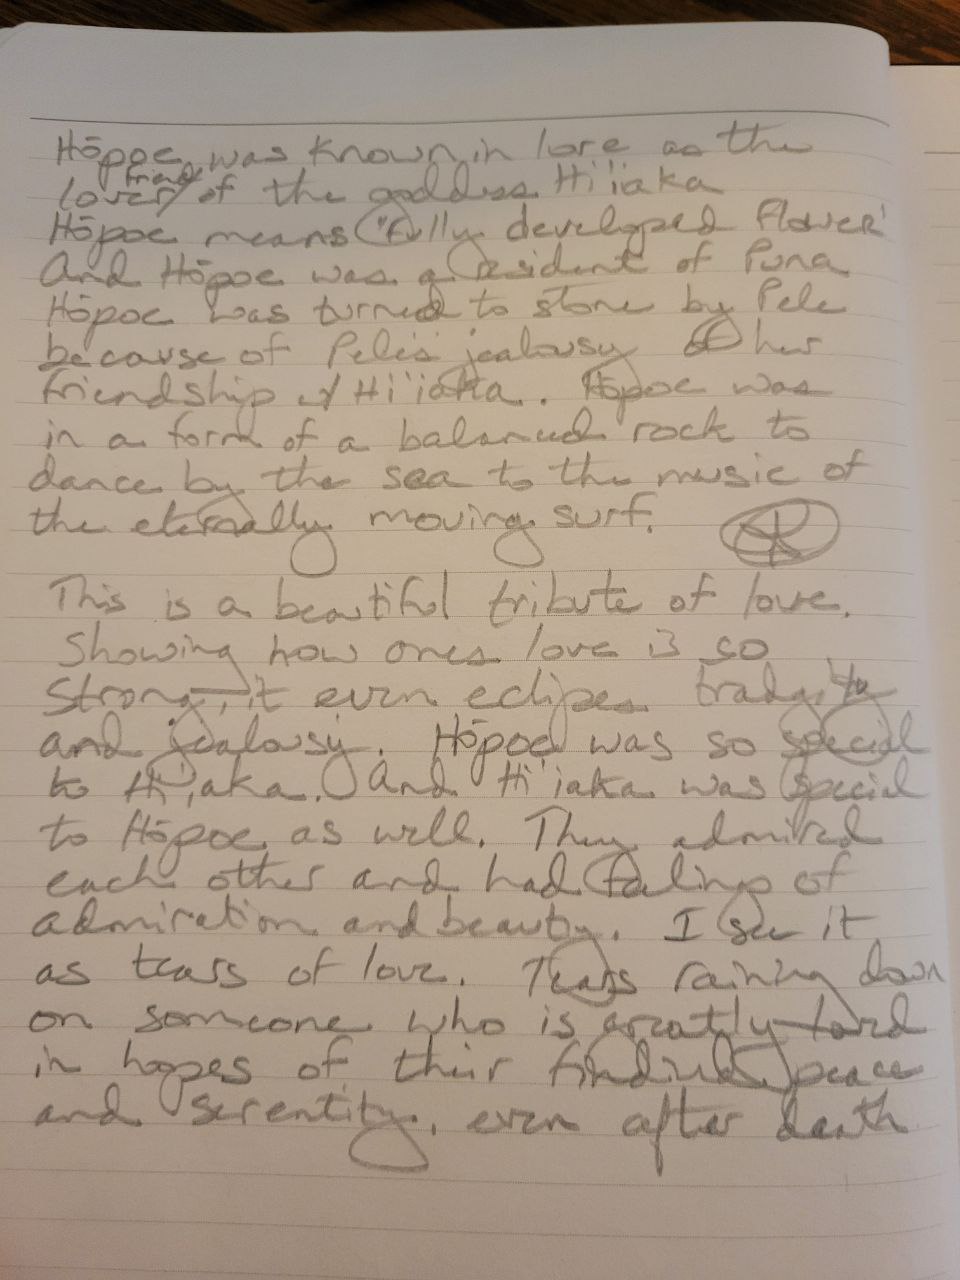 Hōpoe was known in lore as the
lover/friend of the goddess Hi'iaka
Hōpoe means "fully developed Flower"
And Hōpoe was a resident of Puna
Hōpoe was turned to stone by Pele
because of Pele's jealousy of her
friendship w/ Hi'iaka. Hōpoe was
in a form of a balanced rock to
dance by the sea to the music of
the eternally moving surf.
This is a beautiful tribute of love.
Showing how ones love is so
Strong, it even eclipses
and jealousy. Hōpoe was so special
to Hi'iaka. And Hi'iaka was special
to Hōpoe as well. They admired
each other and had feelings of
admiration and beauty. I see it
as tears of love. Tears raining down
on someone who is greatly
in hopes of their finding peace
and serentity, even after death